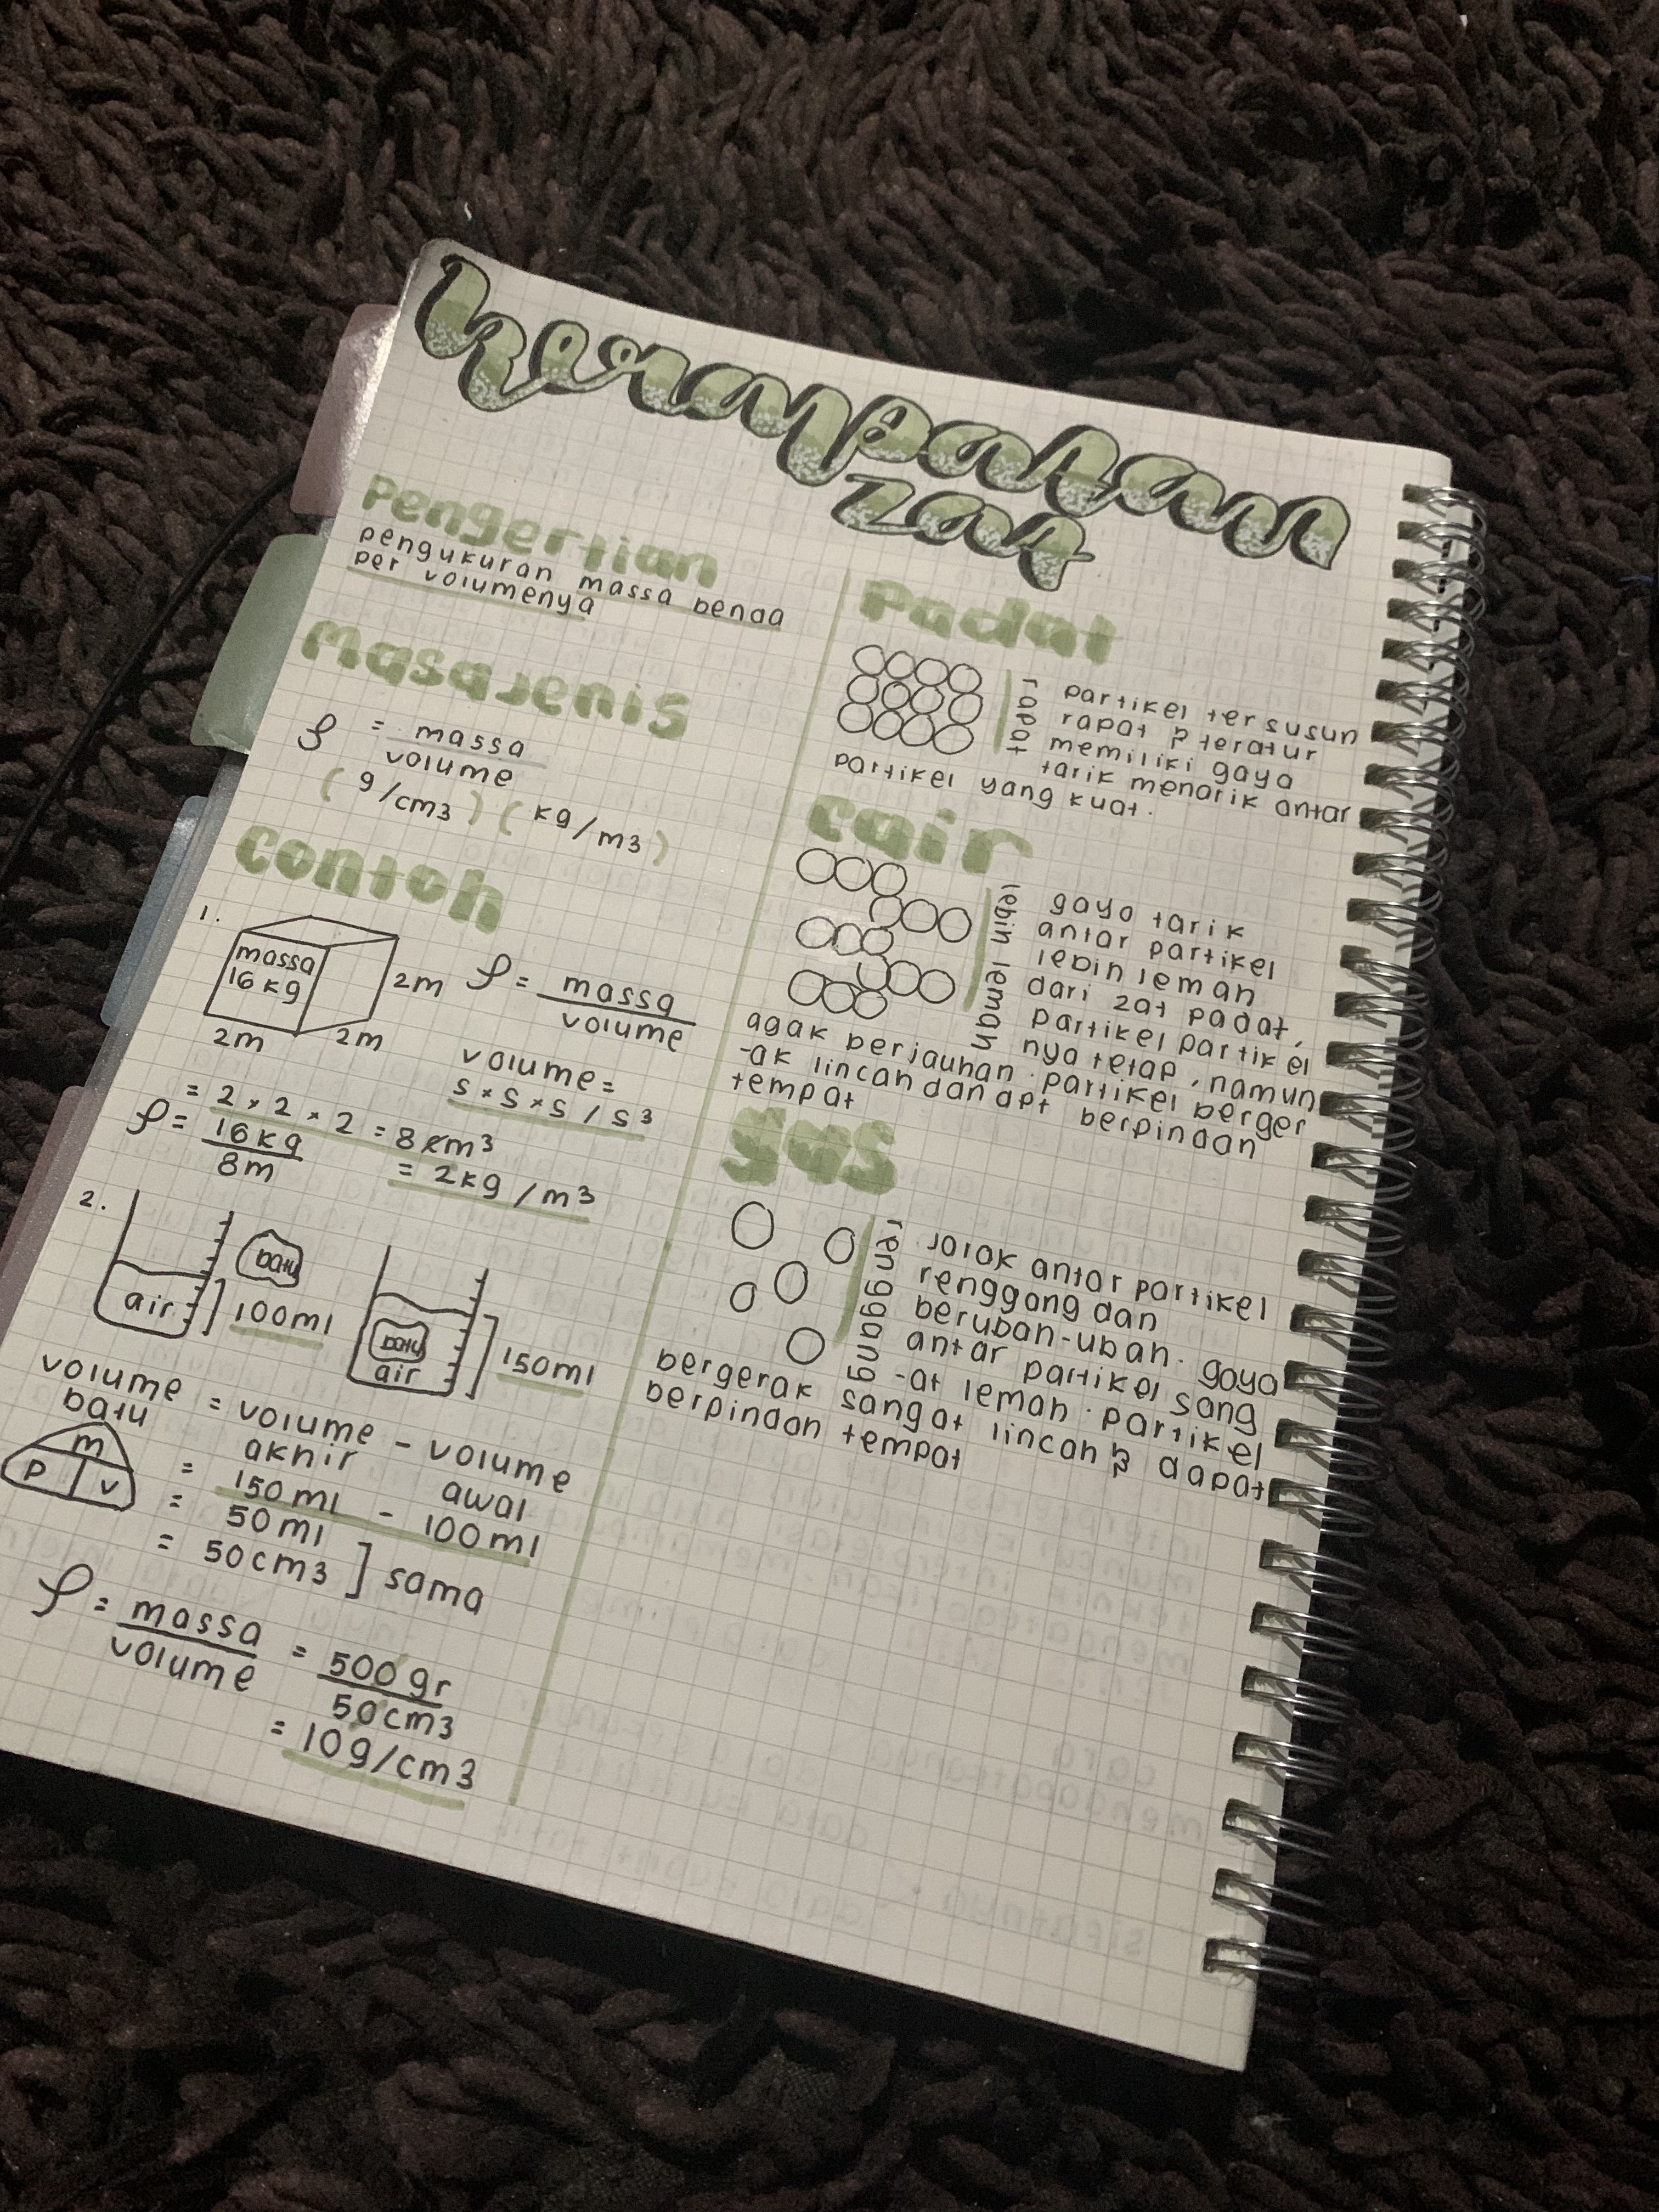 kerapatan
zat
Pengertian
pengukuran massa benda
per volumenya
Masajenis
ρ = massa
volume
( g/cm3 ) ( kg/m3 )
Contoh
1.
massa
16 kg
2m
2m
2m
ρ = massa
volume
volume =
s × s × s / s³
= 2 × 2 × 2 = 8 m³
ρ = 16 kg
8m
= 2kg /m³
2.
air
100ml
batu
batu
air
150ml
volume = volume - volume
batu akhir awal
m
p v
= 150 ml - 100 ml
= 50 ml
= 50 cm3 ] sama
ρ = massa = 500 gr
volume 50 cm3
= 10g/cm3
Padat
rapat
partikel tersusun
rapat & teratur
memiliki gaya
tarik menarik antar
partikel yang kuat.
cair
lebih lemah
gaya tarik
antar partikel
lebih lemah
dari zat padat,
partikel partikel
nya tetap, namun
agak berjauhan. partikel berger
-ak lincah dan dpt berpindah
tempat
gas
renggang
Jarak antar partikel
renggang dan
berubah-ubah. gaya
antar partikel sang
-at lemah. partikel
bergerak sangat lincah & dapat
berpindah tempat